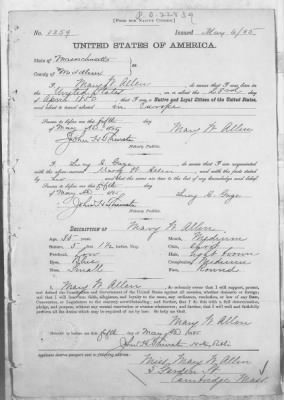 [FORM FOR NATIVE CITIZEN.]
No. Issued May 6/85
UNITED STATES OF AMERICA.
State of Massachusetts
County of Middlesex
I, Mary W. Allen, do swear that I was born in the
United States, on or about the day
of April; that I am a Native and Loyal Citizen of the United States,
and about to travel abroad in Europe
Sworn to before me this fifth
day of May 1885
Mary W. Allen
John H.
Notary Public.
I, Gage, do swear that I am acquainted
with the above-named Mary W. Allen and with the facts stated
by her and that the same are true to the best of my knowledge and belief.
Sworn to before me this fifth
day of May 1885
Gage
John H.
Notary Public.
DESCRIPTION OF Mary W. Allen
Age, years. Mouth, Medium
Stature, 5 feet inches, Eng. Chin,
Forehead, Low Hair, Light brown
Eyes, Complexion, Medium
Nose, Small Face, Round
I, Mary W. Allen, do solemnly swear that I will support, protect,
and defend the Constitution and Government of the United States against all enemies, whether domestic or foreign;
and that I will bear true faith, allegiance, and loyalty to the same, any ordinance, resolution, or law of any State,
Convention, or Legislature to the contrary notwithstanding; and further, that I do this with a full determination,
pledge, and purpose, without any mental reservation or evasion whatsoever; and further, that I will well and faithfully
perform all the duties which may be required of me by law: So help me God.
Mary W. Allen
Sworn to before me this fifth day of May 1885
John H.
Applicant desires passport sent to following address:
Miss Mary W. Allen
5 Garden St
Cambridge Mass